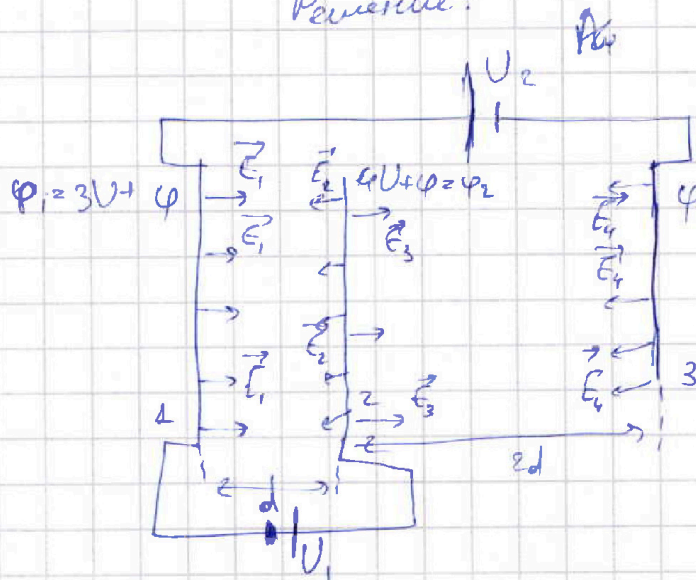 Решение:
U₂
φ₁ = 3U + φ
E⃗₁
E⃗₂
4U+φ=φ₂
φ
E⃗₁
E⃗₃
E⃗₄
E⃗₄
E⃗₂
E⃗₁
E⃗₃
E⃗₄
1
2
3
2d
d
U₁